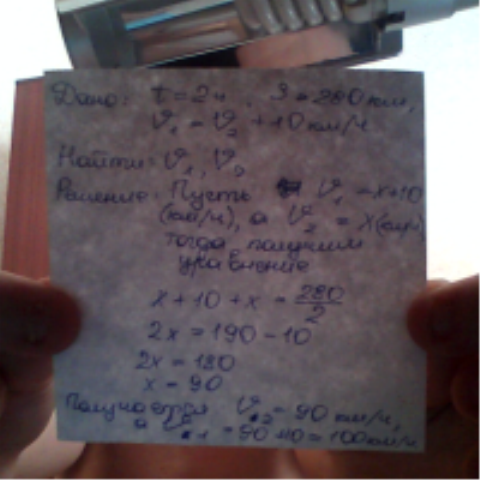 Дано: t = 2ч, S = 280 км,
V₁ = V₂ + 10 км/ч
Найти: V₁, V₂
Решение: Пусть V₁ = x+10
(км/ч), а V₂ = x(км/ч),
тогда получим
уравнение
x + 10 + x = 280/2
2x = 190 - 10
2x = 180
x = 90
Получается V₂ = 90 км/ч,
а V₁ = 90+10 = 100 км/ч